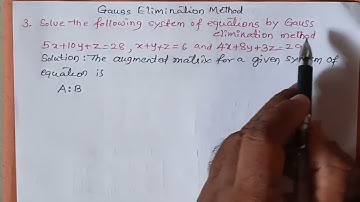 Gauss Elimination Method
3. Solve the following system of equations by Gauss
elimination method
5x+10y+z=28, x+y+z=6 and 4x+8y+3z=29
Solution: The augmented matrix for a given system of
equation is
A:B